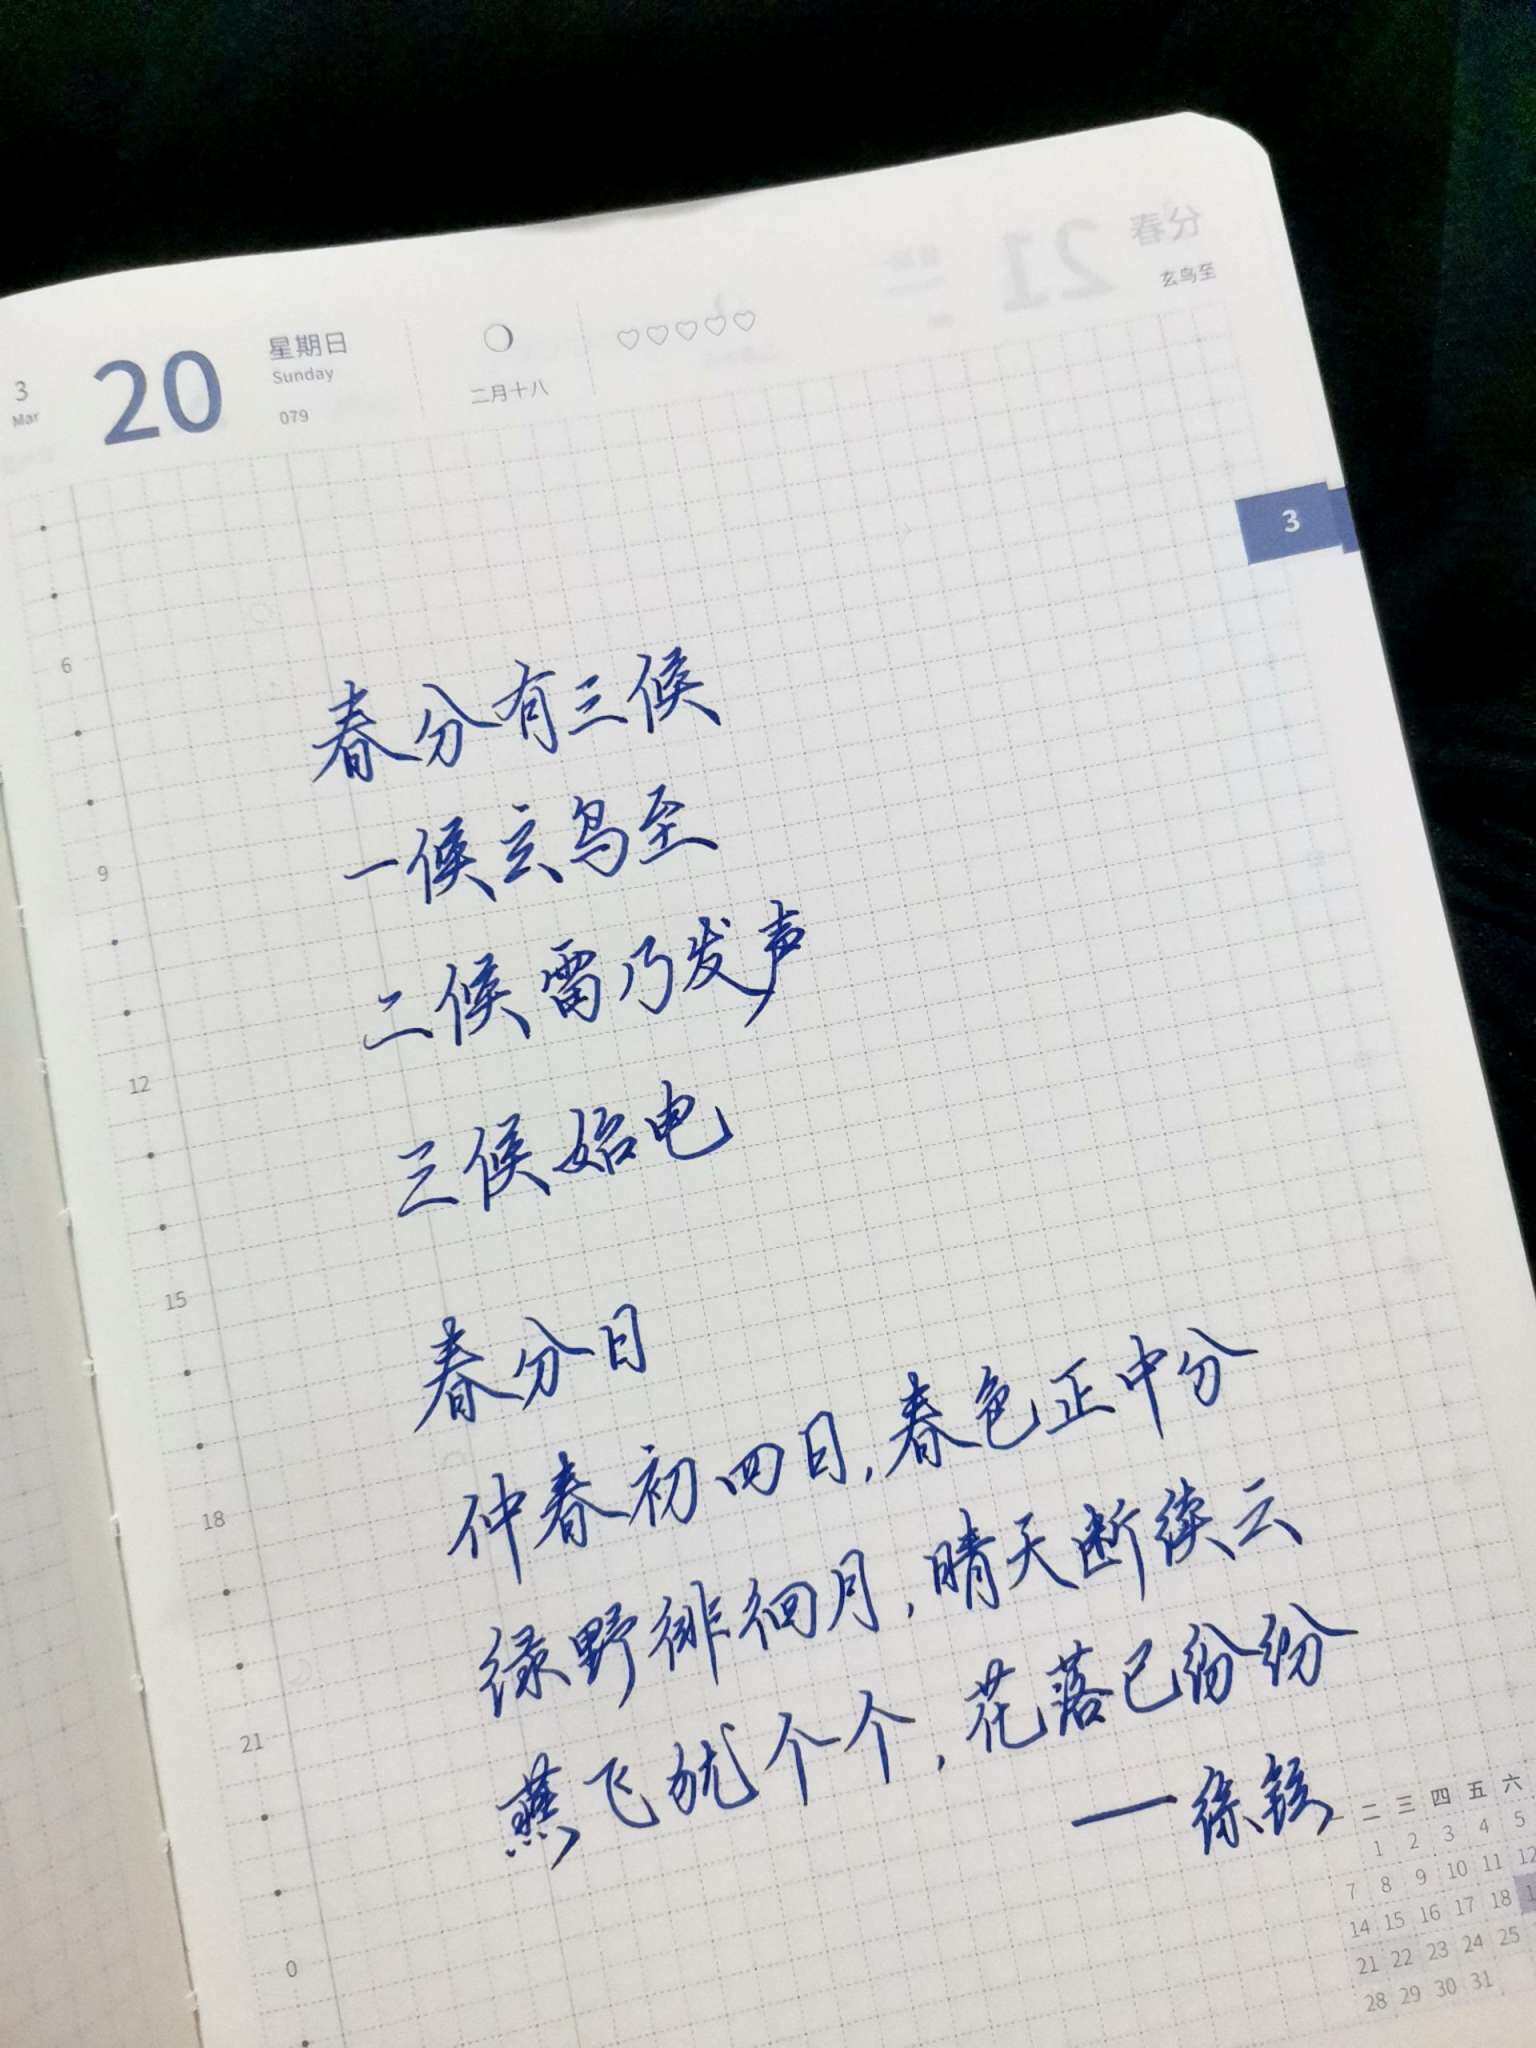 3
Mar
20
星期日
Sunday
079
二月十八
21
春分
玄鸟至
3
6
9
12
15
18
21
0
春分有三候
一候玄鸟至
二候雷乃发声
三候始电
春分日
仲春初四日,春色正中分
绿野徘徊月,晴天断续云
燕飞犹个个,花落已纷纷
——徐铉
二 三 四 五 六
1 2 3 4 5
7 8 9 10 11 12
14 15 16 17 18
21 22 23 24 25
28 29 30 31